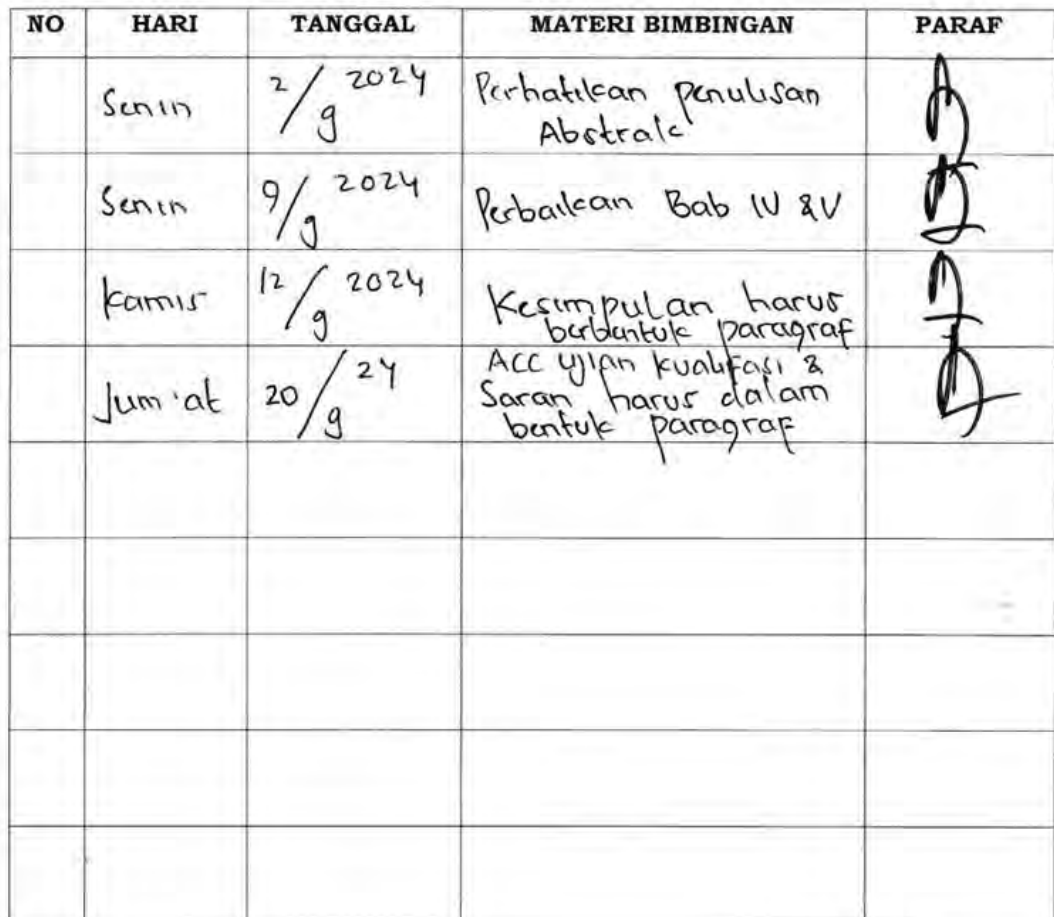 NO HARI TANGGAL MATERI BIMBINGAN PARAF
Senin 2/9 2024 Perhatikan penulisan
Abstrak
Senin 9/9 2024 Perbaikan Bab IV & V
Kamis 12/9 2024 Kesimpulan harus
berbentuk paragraf
Jum'at 20/9 24 ACC Ujian kualifasi &
Saran harus dalam
bentuk paragraf